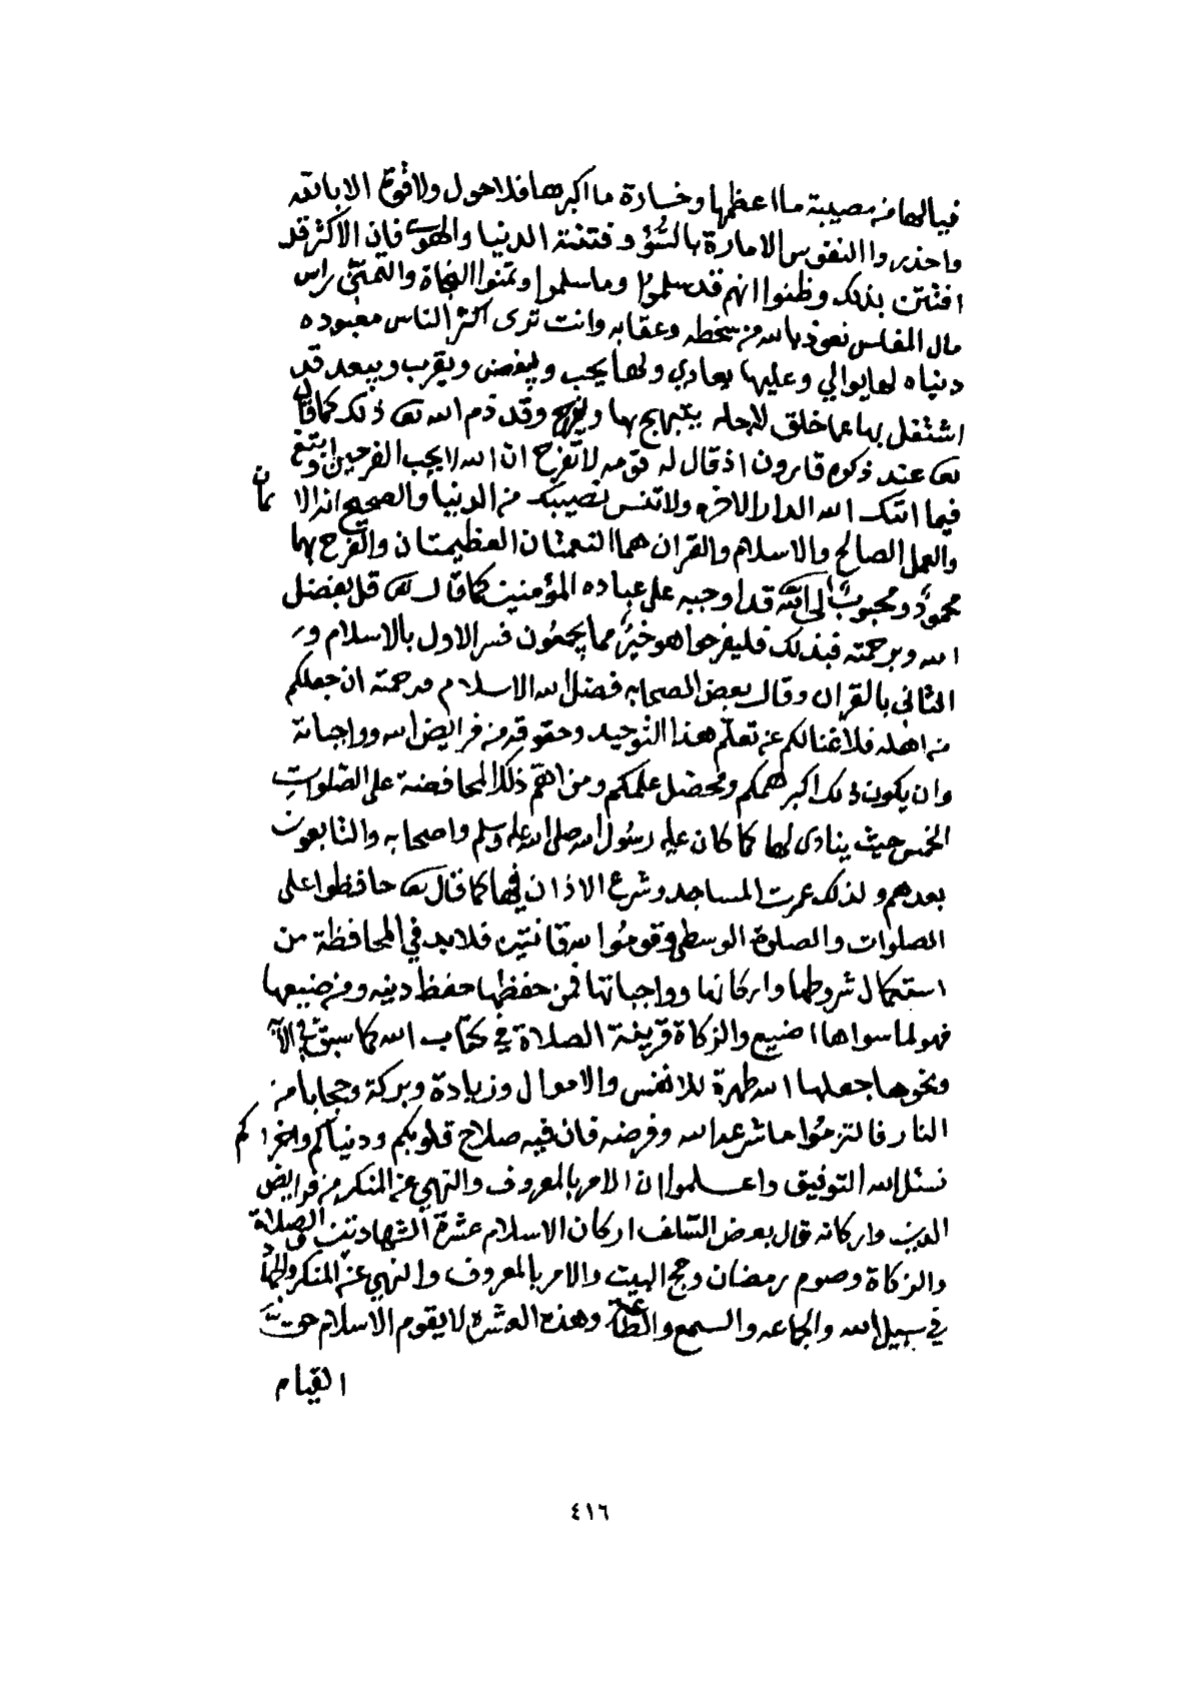 فيالها من مصيبة ما اعظمها وخسارة ما اكبرها فلا حول ولا قوة الا بالله
واحذروا النفوس الامارة بالسُّؤ وفتنة الدنيا والهوى فإن الأكثر قد
افتتن بذلك وظنوا انهم قد سلموا وما سلموا وتمنوا النجاة والتمنّي راس
مال المفاليس نعوذ بالله من سخطه وعقابه وانت ترى اكثر الناس معبوده
دنياه لها يوالي وعليها يعادي ولها يحب ويبغض ويقرب ويبعد قد
اشتغل بها عما خلق لاجله يبتهج بها ويفرح وقد ذم الله تعالى ذلك كما قال
تعالى عند ذكره قارون اذ قال له قومه لا تفرح ان الله لا يحب الفرحين وابتغ
فيما اتىك الله الدار الاخره ولا تنس نصيبك من الدنيا والصحيح ان الايمان
والعمل الصالح والاسلام والقران هما النعمتان العظيمتان والفرح بهما
محمودٌ ومحبوبٌ الى الله قد اوجبه على عباده المؤمنين كما قال تعالى قل بفضل
الله وبرحمته فبذلك فليفرحوا هو خيرٌ مما يجمعُون فسر الاول بالاسلام و
الثاني بالقران وقال بعض الصحابه فضل الله الاسلام ورحمته ان جعلكم
من اهله فلا غنا لكم عن تعلّم هذا التوحيد وحقوقه من فرايض الله وواجباته
وان يكون ذلك اكبر همكم ومحصل علمكم ومن اهمّ ذلك المحافضة على الصّلوات
الخمس حيث ينادى لها كما كان عليه رسُول الله صلى الله عليه وسلم واصحابه والتابعون
بعدهم ولذلك عمرت المساجد وشرع الاذان فيها كما قال تعالى حافظوا على
الصلوات والصلوة الوسطى وقومُوا لله قانتين فلا بد في المحافظة من
استكمال شروطها واركانها وواجباتها فمن حفظها حفظ دينه ومن ضيعها
فهو لما سواها اضيع والزكاة قرينة الصلاة في كتاب الله كما سبق في الآية
ونحوها جعلها الله طهرة للانفس والاموال وزيادة وبركة وحجابا من
النار فالتزمُوا ما شرعه الله وفرضه فان فيه صلاح قلوبكم ودنياكم واخراكم
نسئل الله التوفيق واعلموا ان الامر بالمعروف والنهي عن المنكر من فرايض
الدين واركانه قال بعض السّلف اركان الاسلام عشرة الشهادتين والصلاة
والزكاة وصوم رمضان وحج البيت والامر بالمعروف والنهي عن المنكر والجهاد
في سبيل الله والجماعه والسمع والطاعة وهذه العشره لا يقوم الاسلام حق
القيام
٤١٦